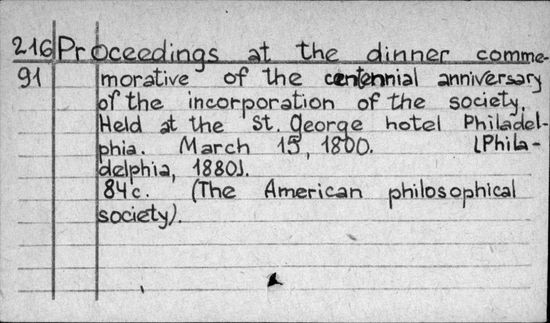 216 Proceedings at the dinner comme-
91 morative of the centennial anniversary
of the incorporation of the society.
Held at the St. George hotel Philadel-
phia. March 15, 1800. [Phila-
delphia, 1880].
84c. (The American philosophical
society).